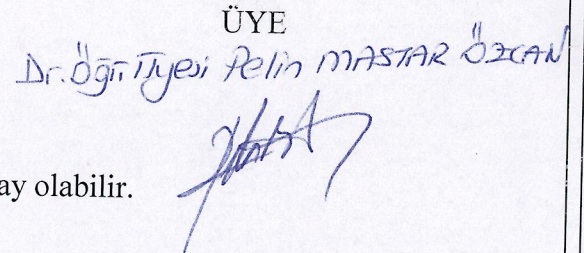 ÜYE
Dr. Öğr. Üyesi Pelin MASTAR ÖZCAN
ay olabilir.